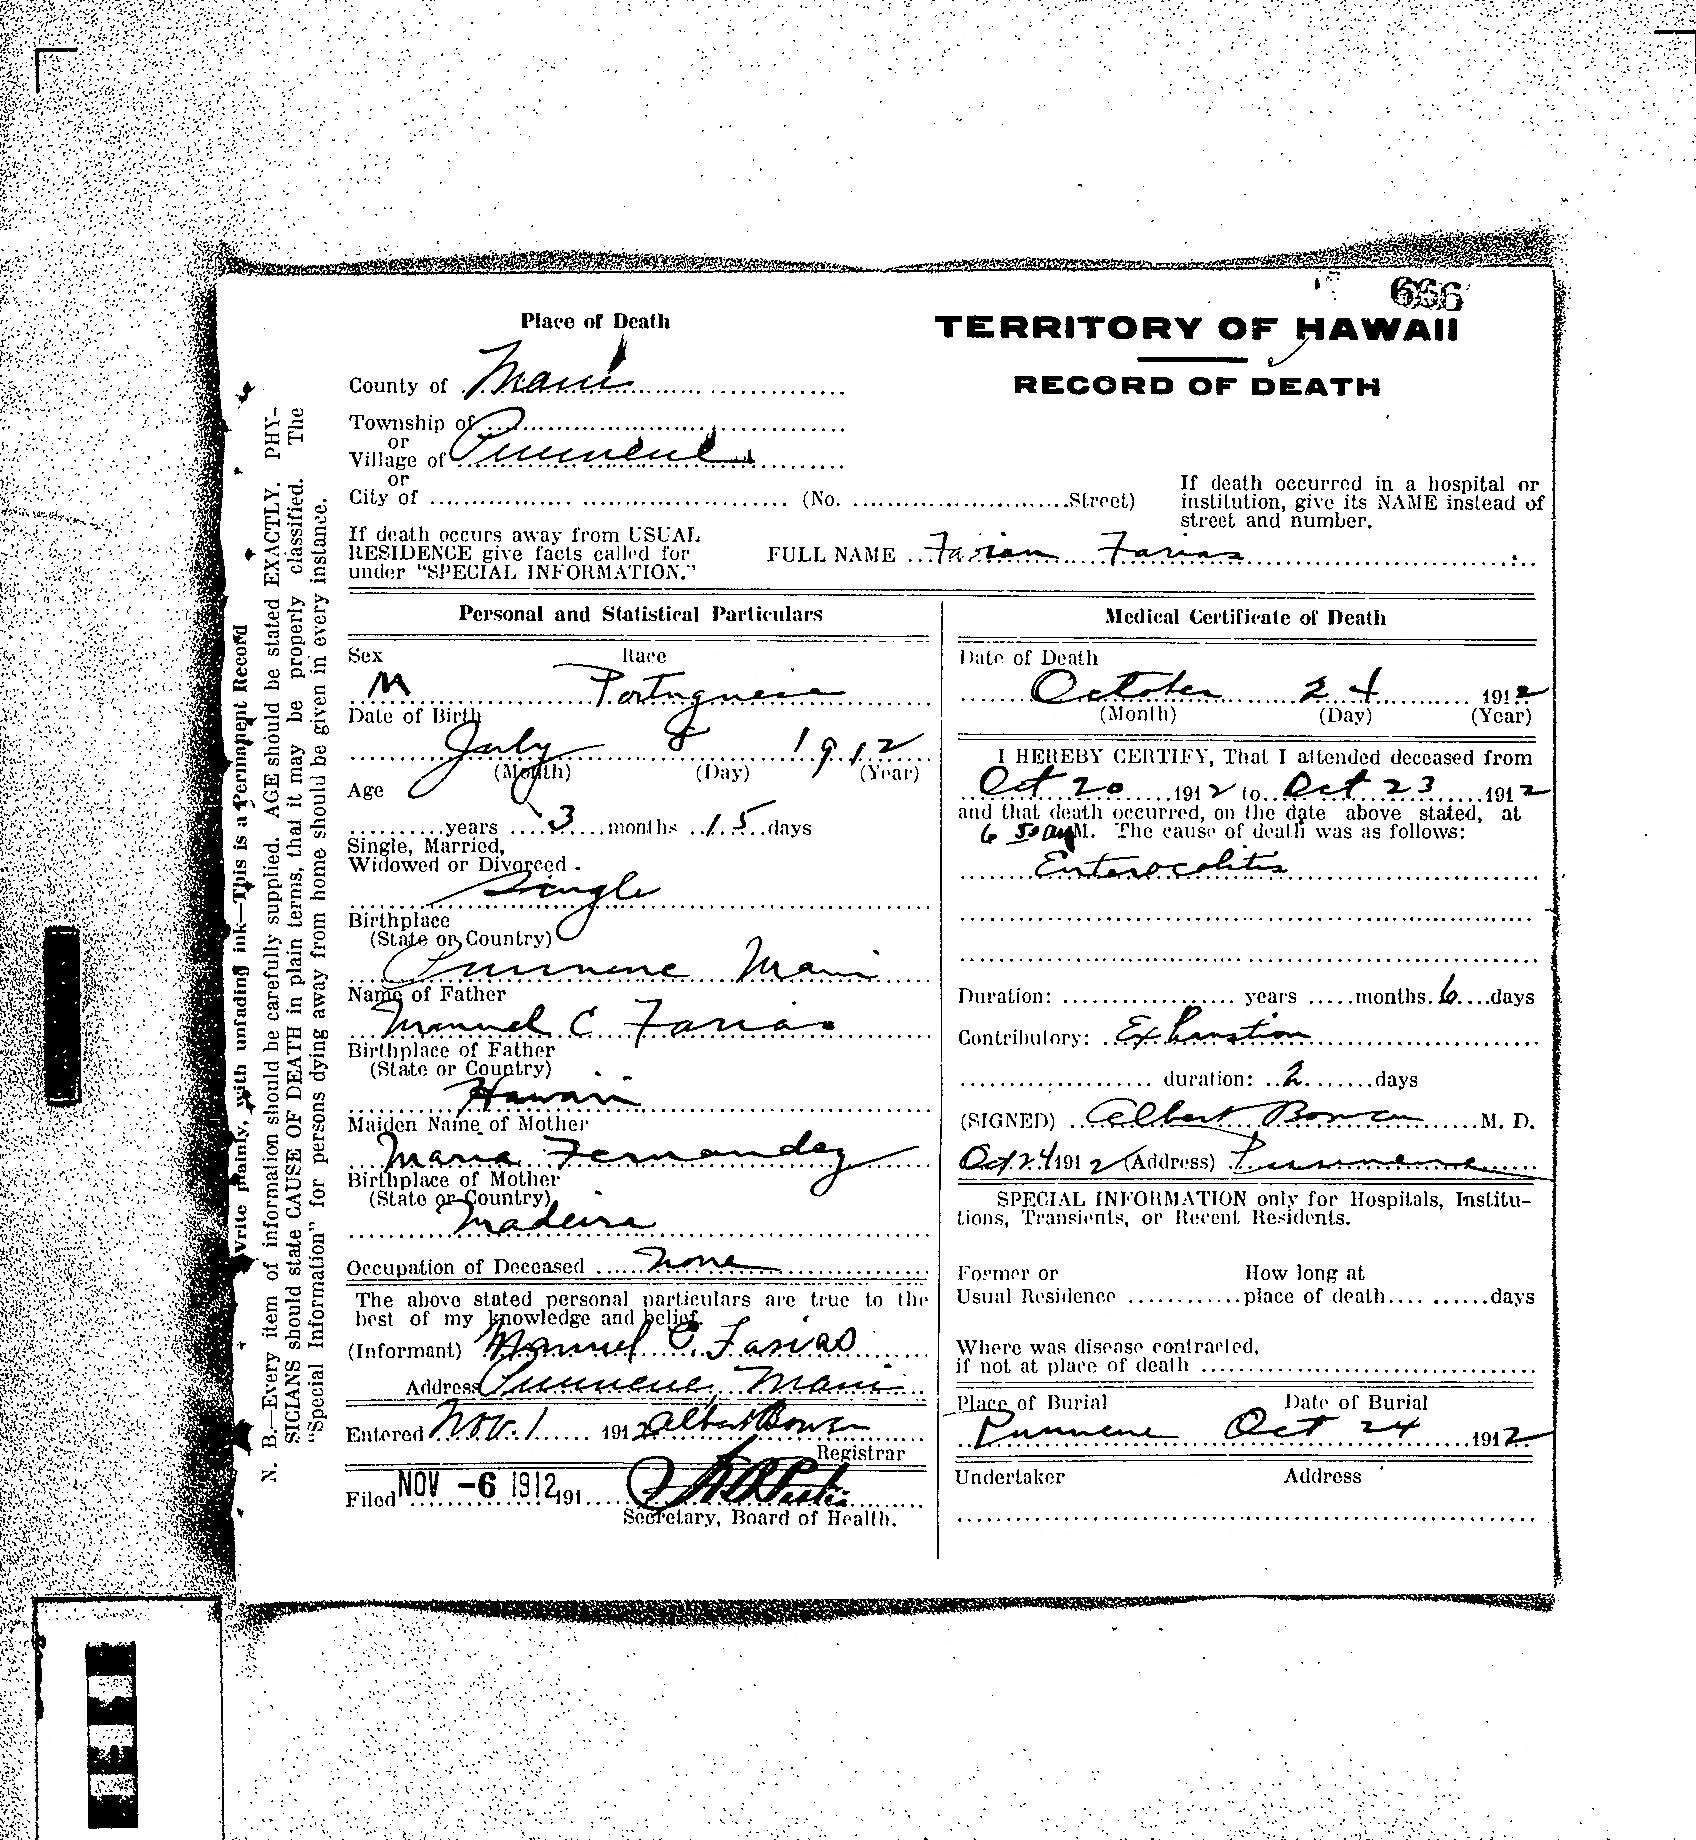 666
Place of Death
TERRITORY OF HAWAII
County of Maui
RECORD OF DEATH
Township of
or
Village of Puunene
or
City of (No. Street)
If death occurred in a hospital or
institution, give its NAME instead of
street and number.
If death occurs away from USUAL
RESIDENCE give facts called for
under "SPECIAL INFORMATION."
FULL NAME Farias
Personal and Statistical Particulars
Sex Race
M Portuguese
Date of Birth
July 8 1912
(Month) (Day) (Year)
Age
years 3 months 15 days
Single, Married,
Widowed or Divorced.
Single
Birthplace
(State or Country)
Puunene Maui
Name of Father
Manuel C Farias
Birthplace of Father
(State or Country)
Hawaii
Maiden Name of Mother
Maria Fernandez
Birthplace of Mother
(State or Country)
Madeira
Occupation of Deceased none
The above stated personal particulars are true to the
best of my knowledge and belief.
(Informant) Manuel C. Farias
Address Puunene, Maui
Entered Nov. 1 1912 Albert Bowen
Registrar
Filed NOV -6 1912 191
Secretary, Board of Health.
Medical Certificate of Death
Date of Death
October 24 1912
(Month) (Day) (Year)
I HEREBY CERTIFY, That I attended deceased from
Oct 20 1912 to Oct 23 1912
and that death occurred, on the date above stated, at
6 50 am M. The cause of death was as follows:
Enterocolitis
Duration: years months 6 days
Contributory: Exhaustion
duration: 2 days
(SIGNED) Albert Bowen M. D.
Oct 24 1912 (Address) Puunene
SPECIAL INFORMATION only for Hospitals, Institu-
tions, Transients, or Recent Residents.
Former or How long at
Usual Residence place of death days
Where was disease contracted,
if not at place of death
Place of Burial Date of Burial
Puunene Oct 24 1912
Undertaker Address
Write plainly, with unfading ink—This is a Permanent Record
N. B.—Every item of information should be carefully supplied. AGE should be stated EXACTLY. PHY-
SICIANS should state CAUSE OF DEATH in plain terms, that it may be properly classified. The
"Special Information" for persons dying away from home should be given in every instance.